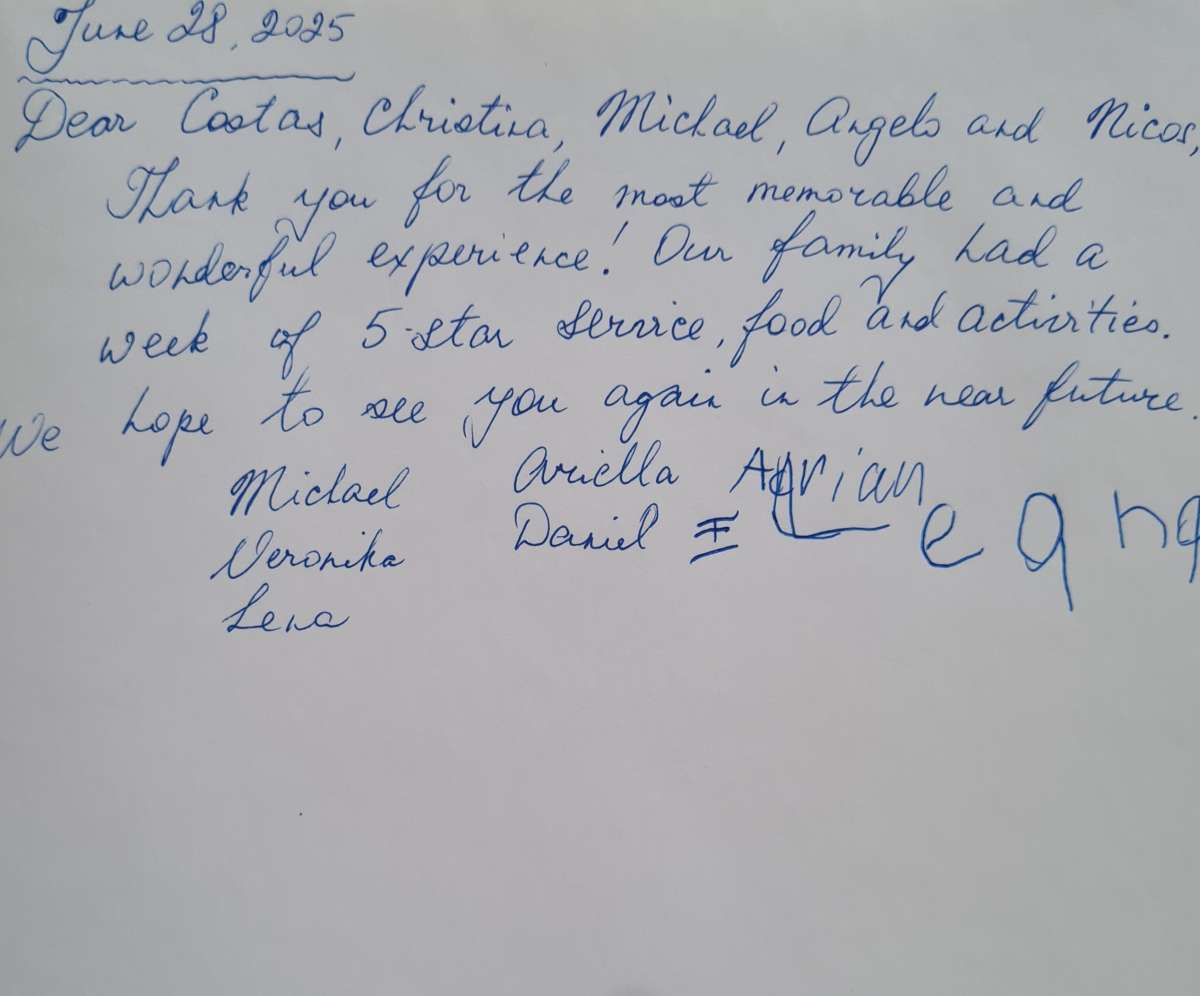 June 28, 2025
Dear Costas, Christina, Michael, Angelo and Nicos,
Thank you for the most memorable and
wonderful experience! Our family had a
week of 5-star service, food and activities.
We hope to see you again in the near future.
Michael Ariella Adrian
Veronika Daniel
Lena